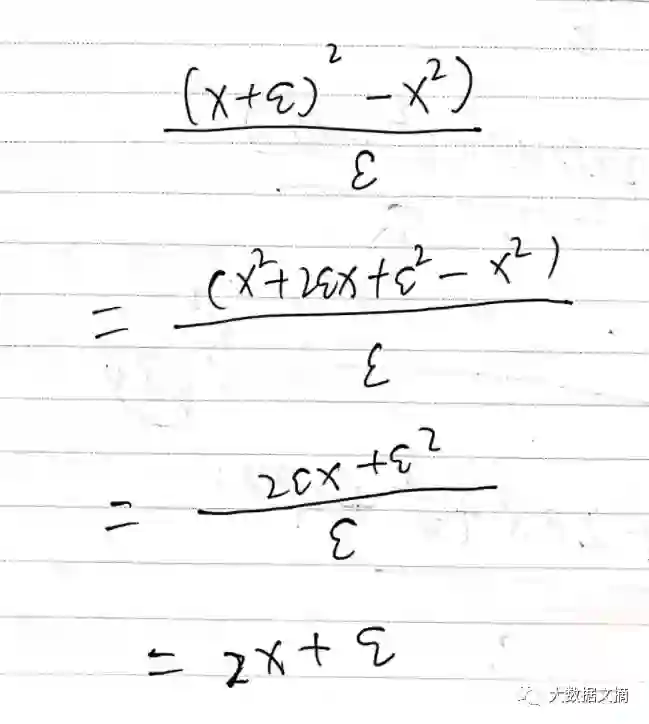 (x+ε)² - x²)
ε
= (x²+2εx+ε² - x²)
ε
= 2εx+ε²
ε
= 2x+ε
大数据文摘